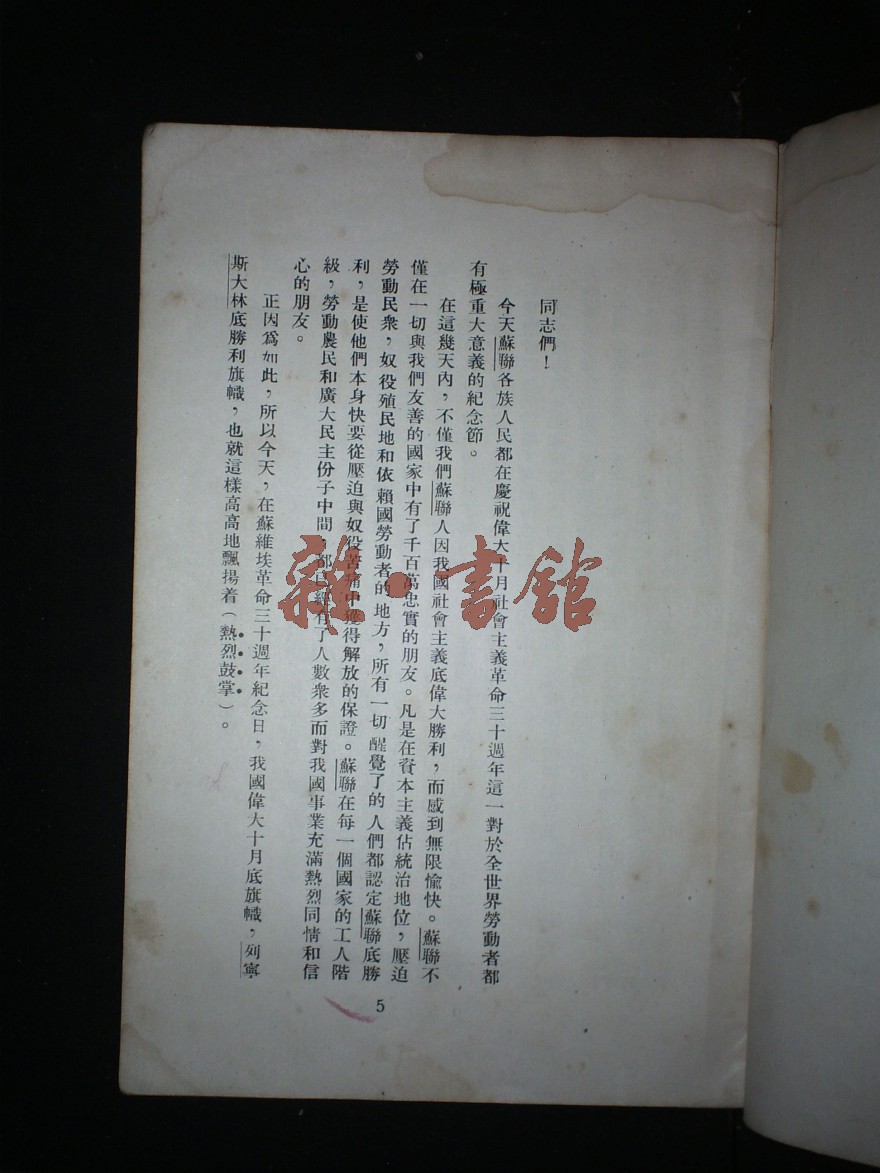 同志們！
今天蘇聯各族人民都在慶祝偉大十月社會主義革命三十週年這一對於全世界勞動者都
有極重大意義的紀念節。
在這幾天內，不僅我們蘇聯人因我國社會主義底偉大勝利，而感到無限愉快。蘇聯不
僅在一切與我們友善的國家中有了千百萬忠實的朋友。凡是在資本主義佔統治地位，壓迫
勞動民衆，奴役殖民地和依賴國勞動者的地方，所有一切醒覺了的人們都認定蘇聯底勝
利，是使他們本身快要從壓迫與奴役苦痛中獲得解放的保證。蘇聯在每一個國家的工人階
級，勞動農民和廣大民主份子中間，都已經有了人數衆多而對我國事業充滿熱烈同情和信
心的朋友。
正因爲如此，所以今天，在蘇維埃革命三十週年紀念日，我國偉大十月底旗幟，列寧
斯大林底勝利旗幟，也就這樣高高地飄揚着（熱烈鼓掌）。
5
雜·書館